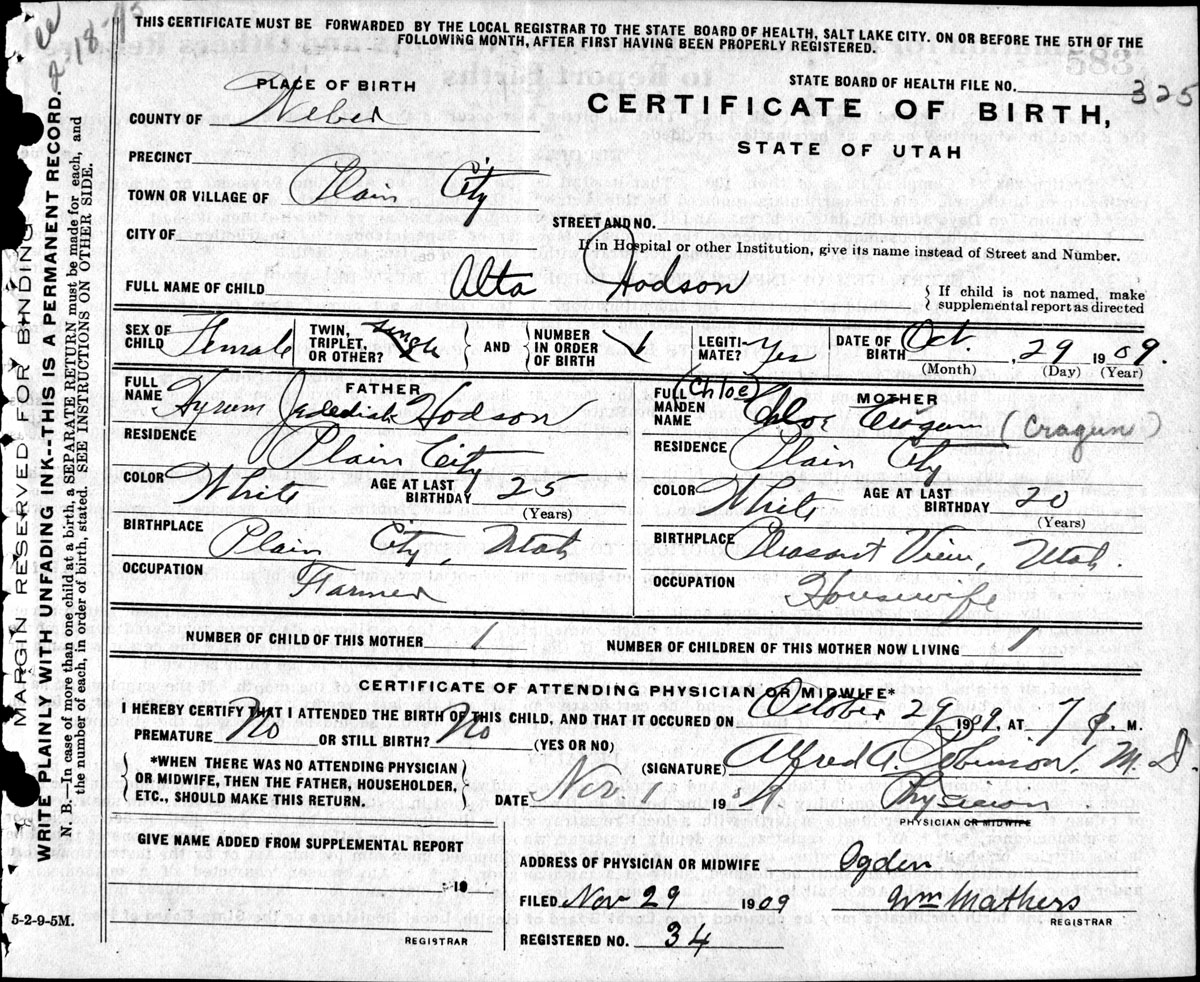 THIS CERTIFICATE MUST BE FORWARDED BY THE LOCAL REGISTRAR TO THE STATE BOARD OF HEALTH, SALT LAKE CITY. ON OR BEFORE THE 5TH OF THE
FOLLOWING MONTH, AFTER FIRST HAVING BEEN PROPERLY REGISTERED.
MARGIN RESERVED FOR BINDING
WRITE PLAINLY WITH UNFADING INK--THIS IS A PERMANENT RECORD.
N. B.—In case of more than one child at a birth, a SEPARATE RETURN must be made for each, and
the number of each, in order of birth, stated. SEE INSTRUCTIONS ON OTHER SIDE.
PLACE OF BIRTH
STATE BOARD OF HEALTH FILE NO. 325
COUNTY OF Weber
CERTIFICATE OF BIRTH,
STATE OF UTAH
PRECINCT
TOWN OR VILLAGE OF Plain City
STREET AND NO.
CITY OF
If in Hospital or other Institution, give its name instead of Street and Number.
FULL NAME OF CHILD Alta Hodson
If child is not named, make
supplemental report as directed
SEX OF CHILD Female TWIN, TRIPLET, OR OTHER? single AND NUMBER IN ORDER OF BIRTH 1 LEGITI-MATE? Yes DATE OF BIRTH Oct. 29 1909.
(Month) (Day) (Year)
FATHER
FULL NAME Hyrum Jedediah Hodson
RESIDENCE Plain City
COLOR White AGE AT LAST BIRTHDAY 25
(Years)
BIRTHPLACE Plain City, Utah
OCCUPATION Farmer
MOTHER
FULL MAIDEN NAME (Chloe) Chloe Cragun (Cragun)
RESIDENCE Plain City
COLOR White AGE AT LAST BIRTHDAY 20
(Years)
BIRTHPLACE Pleasant View, Utah.
OCCUPATION Housewife
NUMBER OF CHILD OF THIS MOTHER 1 NUMBER OF CHILDREN OF THIS MOTHER NOW LIVING 1
CERTIFICATE OF ATTENDING PHYSICIAN OR MIDWIFE*
I HEREBY CERTIFY THAT I ATTENDED THE BIRTH OF THIS CHILD, AND THAT IT OCCURED ON October 29 1909, AT 7 P. M.
PREMATURE No OR STILL BIRTH? No (YES OR NO)
(SIGNATURE) Alfred A. Robinson, M. D.
*WHEN THERE WAS NO ATTENDING PHYSICIAN
OR MIDWIFE, THEN THE FATHER, HOUSEHOLDER,
ETC., SHOULD MAKE THIS RETURN.
DATE Nov 1 1909 Physician
PHYSICIAN OR MIDWIFE
GIVE NAME ADDED FROM SUPPLEMENTAL REPORT
19
REGISTRAR
5-2-9-5M.
ADDRESS OF PHYSICIAN OR MIDWIFE Ogden
FILED Nov 29 1909 Wm Mathers
REGISTRAR
REGISTERED NO. 34